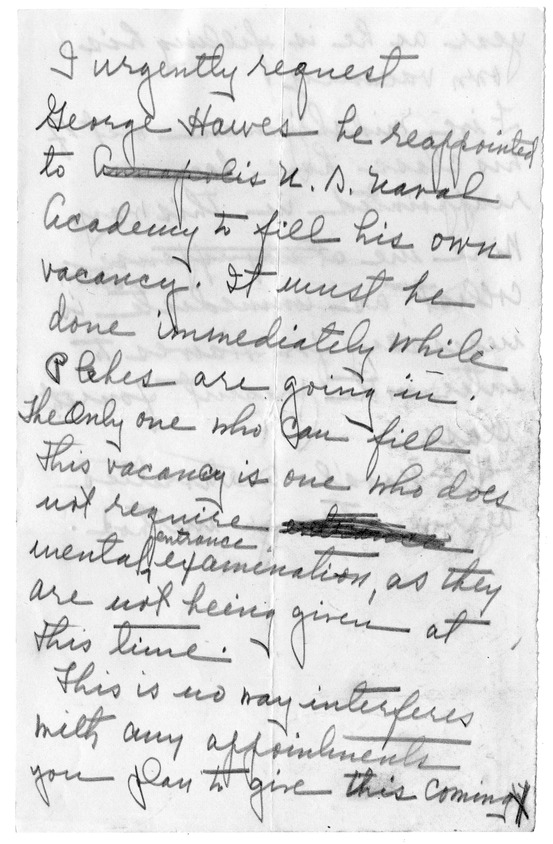 I urgently request
George Hawes be reappointed
to Annapolis U. S. Naval
Academy to fill his own
vacancy. It must be
done immediately while
Plebes are going in.
The Only one who can fill
this vacancy is one who does
not require entrance
mental entrance examination, as they
are not being given at
this time.
This is no way interferes
with any appointments
you plan to give this coming